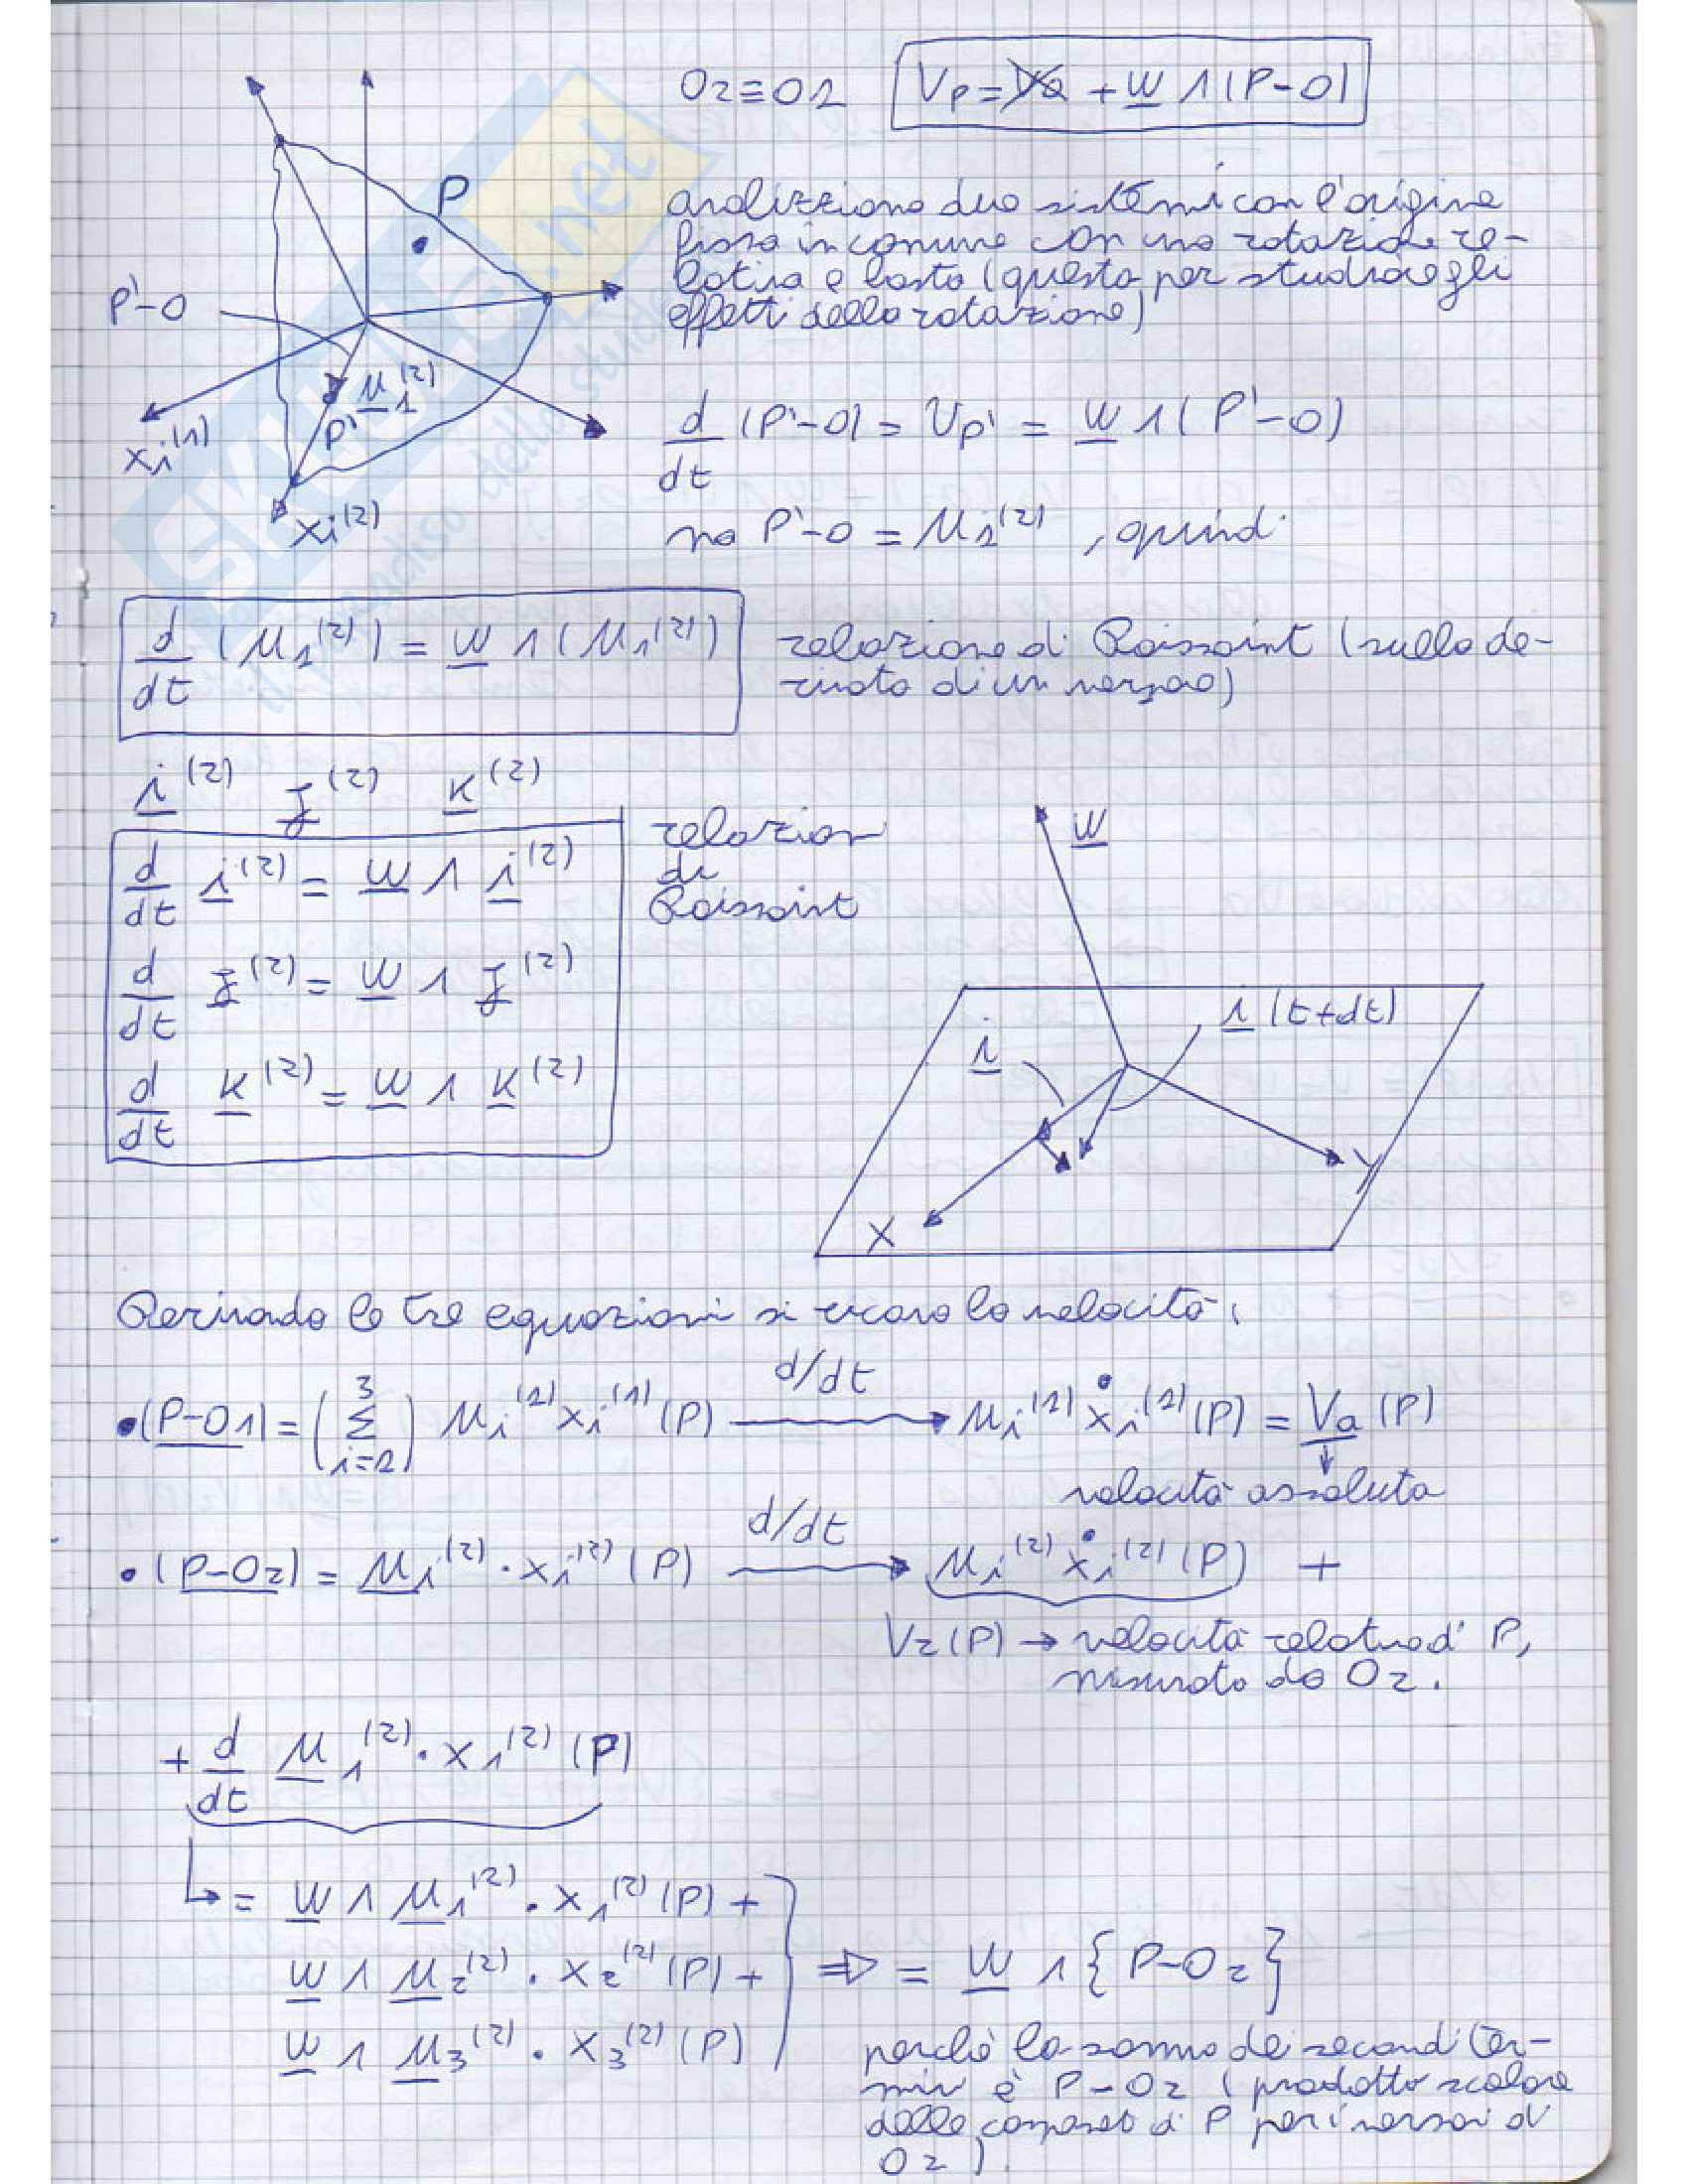 O2≡O1 Vp = Vo + w ∧ (P-O)
P
analizziamo due sistemi con l'origine
fissa in comune con una rotazione re-
lativa e basta (questo per studiare gli
effetti della rotazione)
P'-O
u1(2)
P'
x1(1)
xi(2)
d/dt (P'-O) = Vp' = w ∧ (P'-O)
ma P'-O = u1(2) , quindi
d/dt (u1(2)) = w ∧ (u1(2)) relazione di Poissoint (sulla de-
rivata di un versore)
i(2) j(2) k(2)
d/dt i(2) = w ∧ i(2)
d/dt j(2) = w ∧ j(2)
d/dt k(2) = w ∧ k(2)
relazion
di
Poissoint
w
i
i (t+dt)
X
Y
Derivando le tre equazioni si ricava la velocità:
• (P-O1) = (3 Σ i=1) ui(1) xi(1) (P) d/dt → ui(1) ẋi(1) (P) = Va (P)
velocità assoluta
• (P-O2) = ui(2) · xi(2) (P) d/dt → ui(2) ẋi(2) (P) +
Vr (P) → velocità relativa di P,
misurata da O2.
+ d/dt u1(2) · x1(2) (P)
= w ∧ u1(2) · x1(2) (P) +
w ∧ u2(2) · x2(2) (P) +
w ∧ u3(2) · x3(2) (P)
⇒ = w ∧ {P-O2}
perchè la somma dei secondi ter-
mini è P-O2 (prodotto scalare
delle componenti di P per i versori di
O2).
SKUOLA.net
il paradiso dello studente